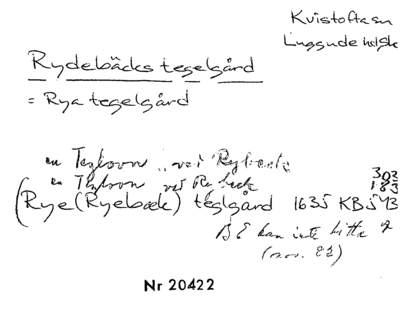 Kvistofta sn
Luggude hd sk
Rydebäcks tegelgård
= Rya tegelgård
en Teglovn ved Ryebeck
303
en Theglovn ved Rybeck
183
(Rye (Ryebæk) teglgård 1635 KB 5 43
BE kan inte hitta
(nov. 82)
Nr 20422